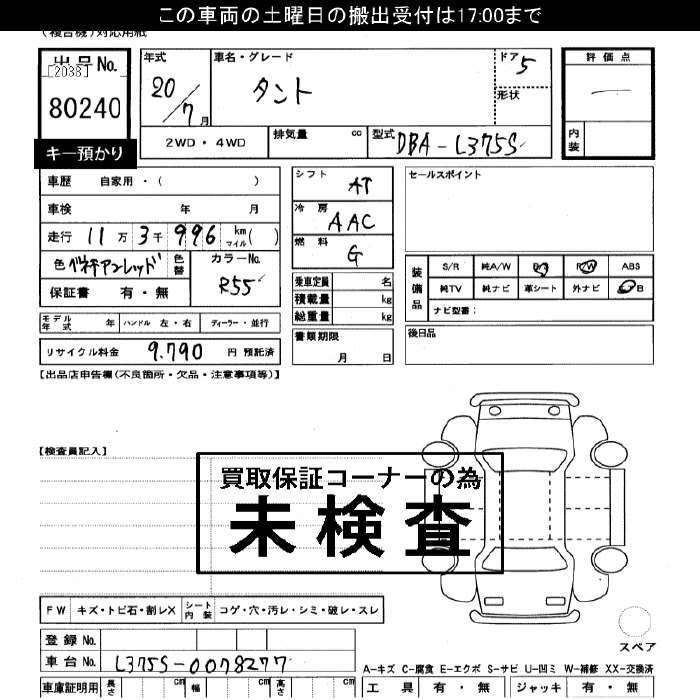 この車両の土曜日の搬出受付は17:00まで
(複合機)対応用紙
出品No. [2038] 80240
キー預かり
年式 20/7月
車名・グレード タント
ドア 5
形状
評価点 —
内装
2WD・4WD
排気量 cc
型式 DBA-L375S
車歴 自家用・( )
車検 年 月
走行 11万3千996 km マイル( )
色替
カラーNo. R55
保証書 有・無
シフト AT
冷房 AAC
燃料 G
乗車定員 名
積載量 kg
総重量 kg
セールスポイント
装備品 S/R 純A/W P/S P/W ABS
純TV 純ナビ 革シート 外ナビ B
ナビ型番:
モデル年式 年 ハンドル 左・右 ディーラー・並行
リサイクル料金 9,790 円 預託済
書類期限 月 日
後日品
【出品店申告欄(不良箇所・欠品・注意事項等)】
【検査員記入】
買取保証コーナーの為
未検査
FW キズ・トビ石・割レX シート内装 コゲ・穴・汚レ・シミ・破レ・スレ
スペア
登録No.
車台No. L375S-0078277
A-キズ C-腐食 E-エクボ S-サビ U-凹ミ W-補修 XX-交換済
車庫証明用 長さ cm 幅 cm 高さ cm
工具 有・無 ジャッキ 有・無